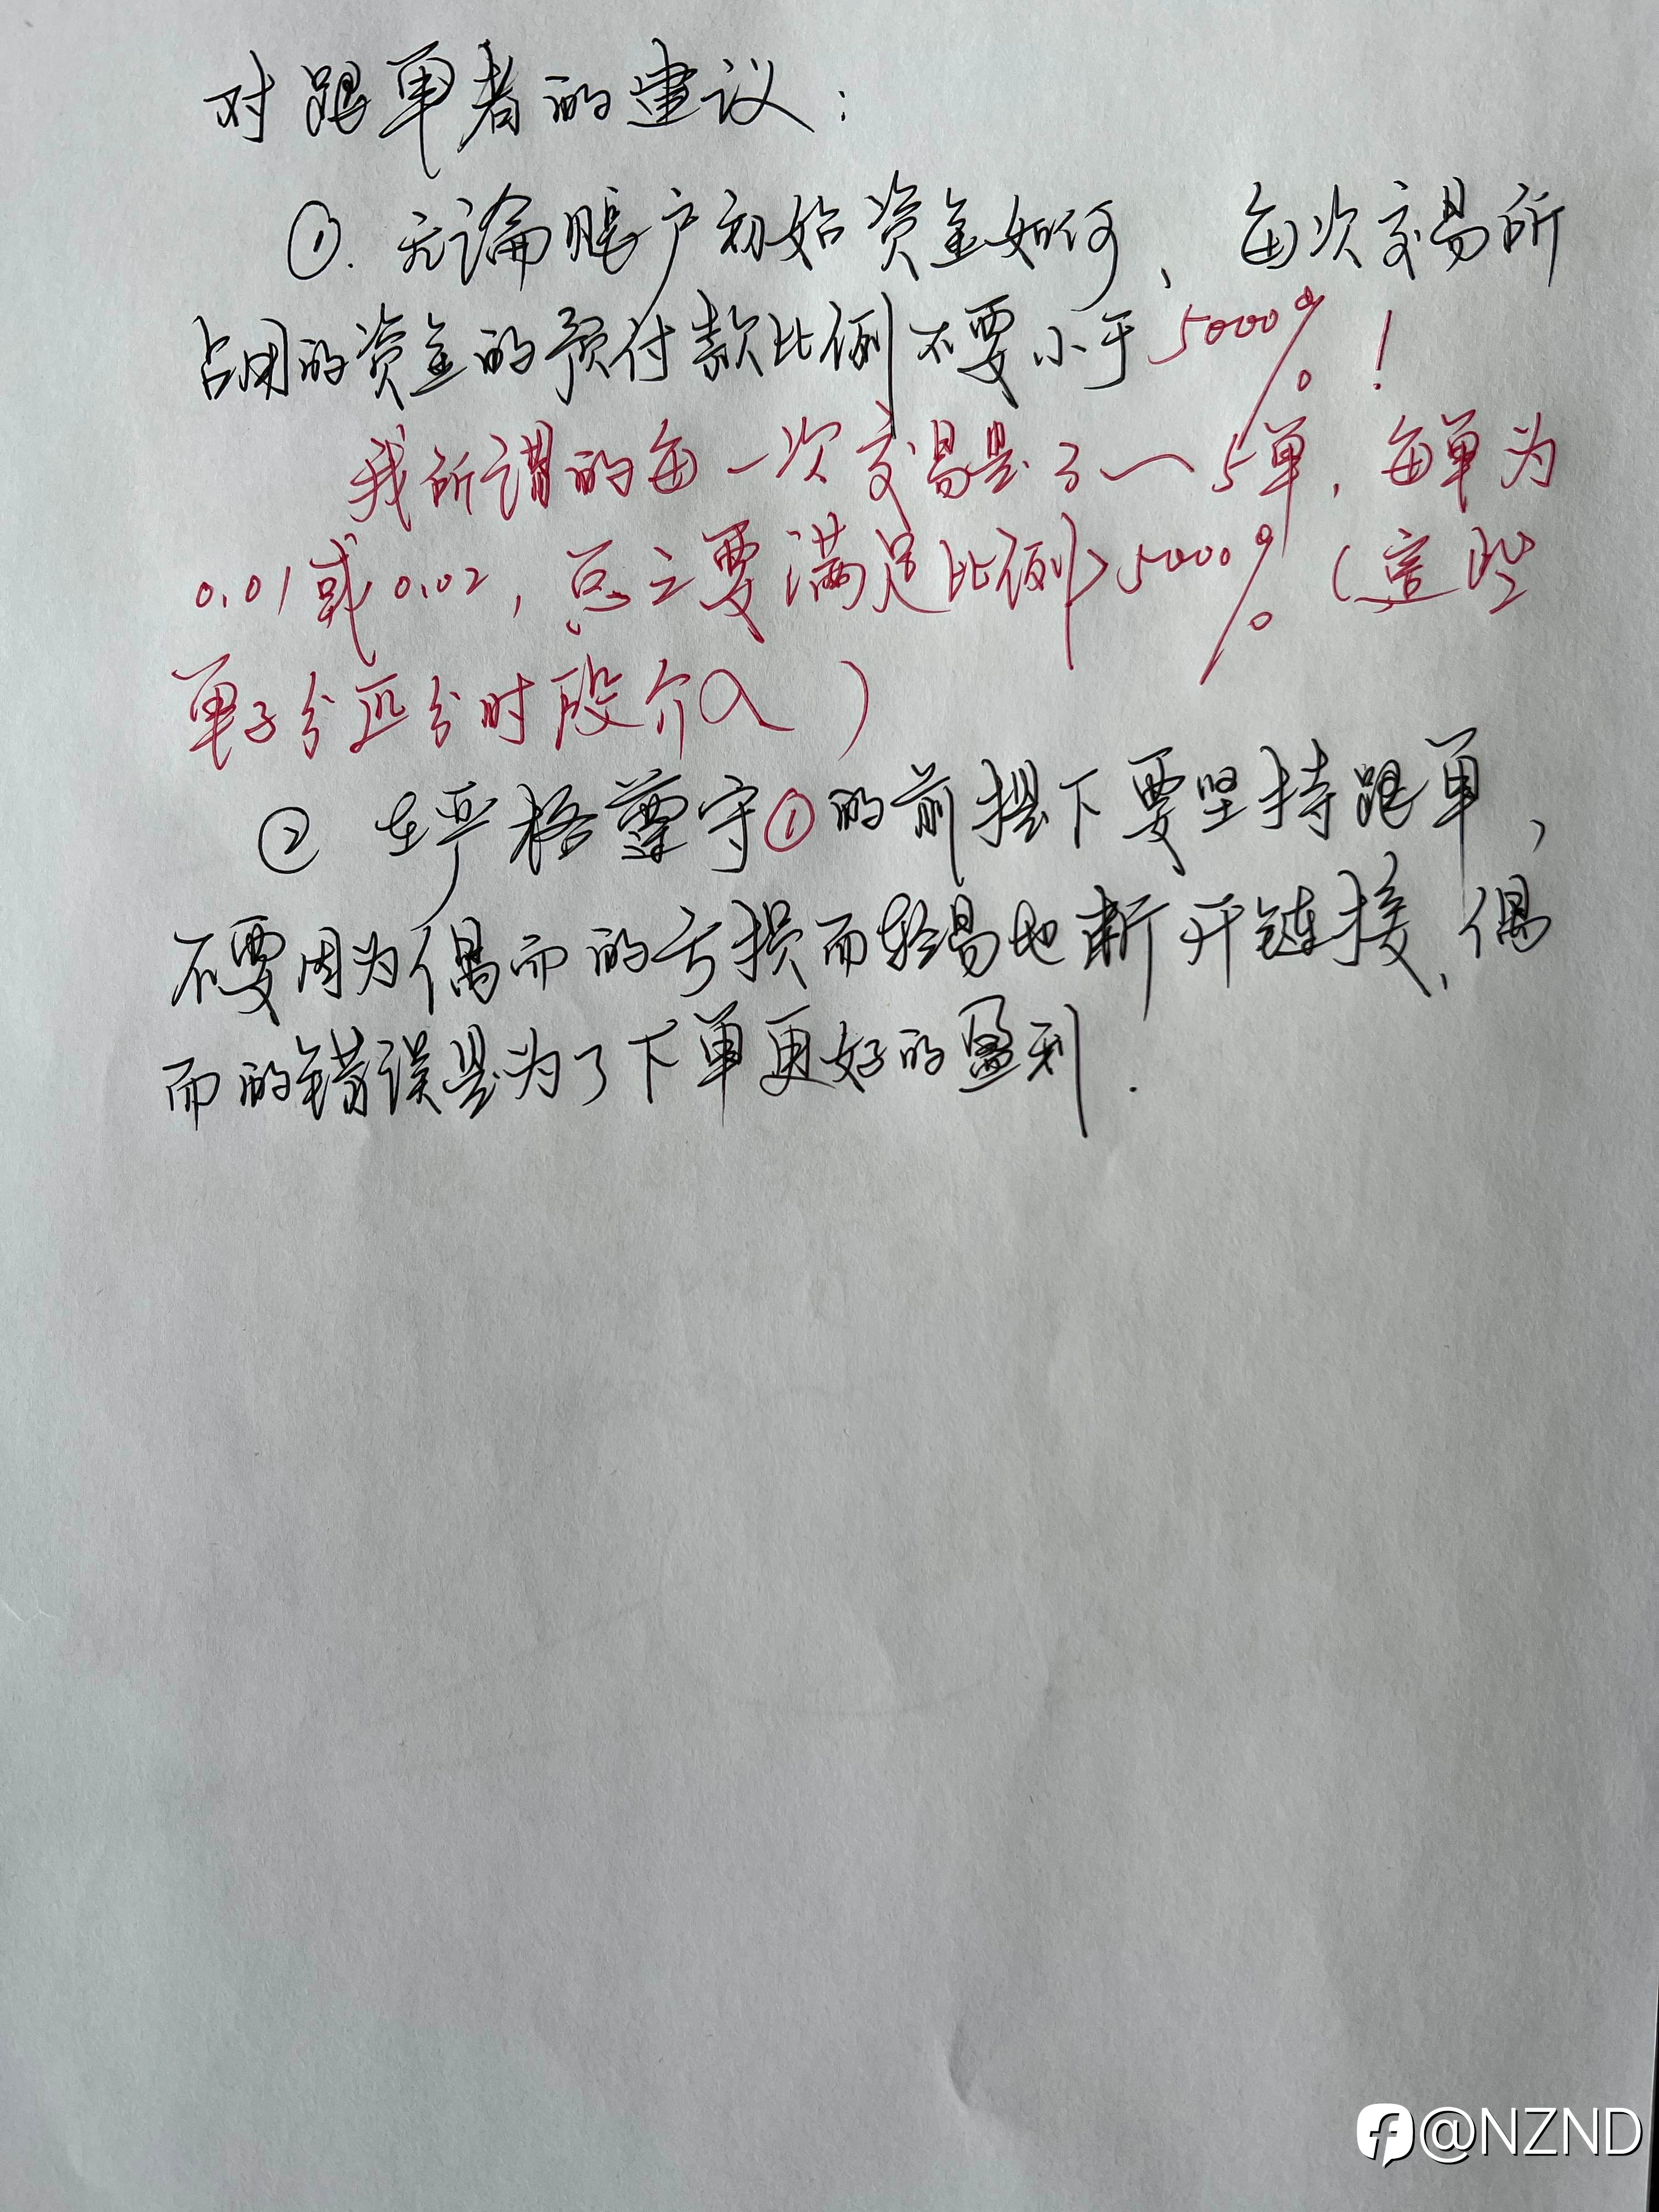 对跟单者的建议：
①. 无论账户初始资金如何，每次交易所
占用的资金的预付款比例不要小于5000%！
我所谓的每一次交易是3~5单，每单为
0.01或0.02，总之要满足比例>5000%（这些
单子分区分时段介入）
② 在严格尊守①的前提下要坚持跟单，
不要因为偶而的亏损而轻易地断开链接，偶
而的错误是为了下单更好的盈利.
@NZND